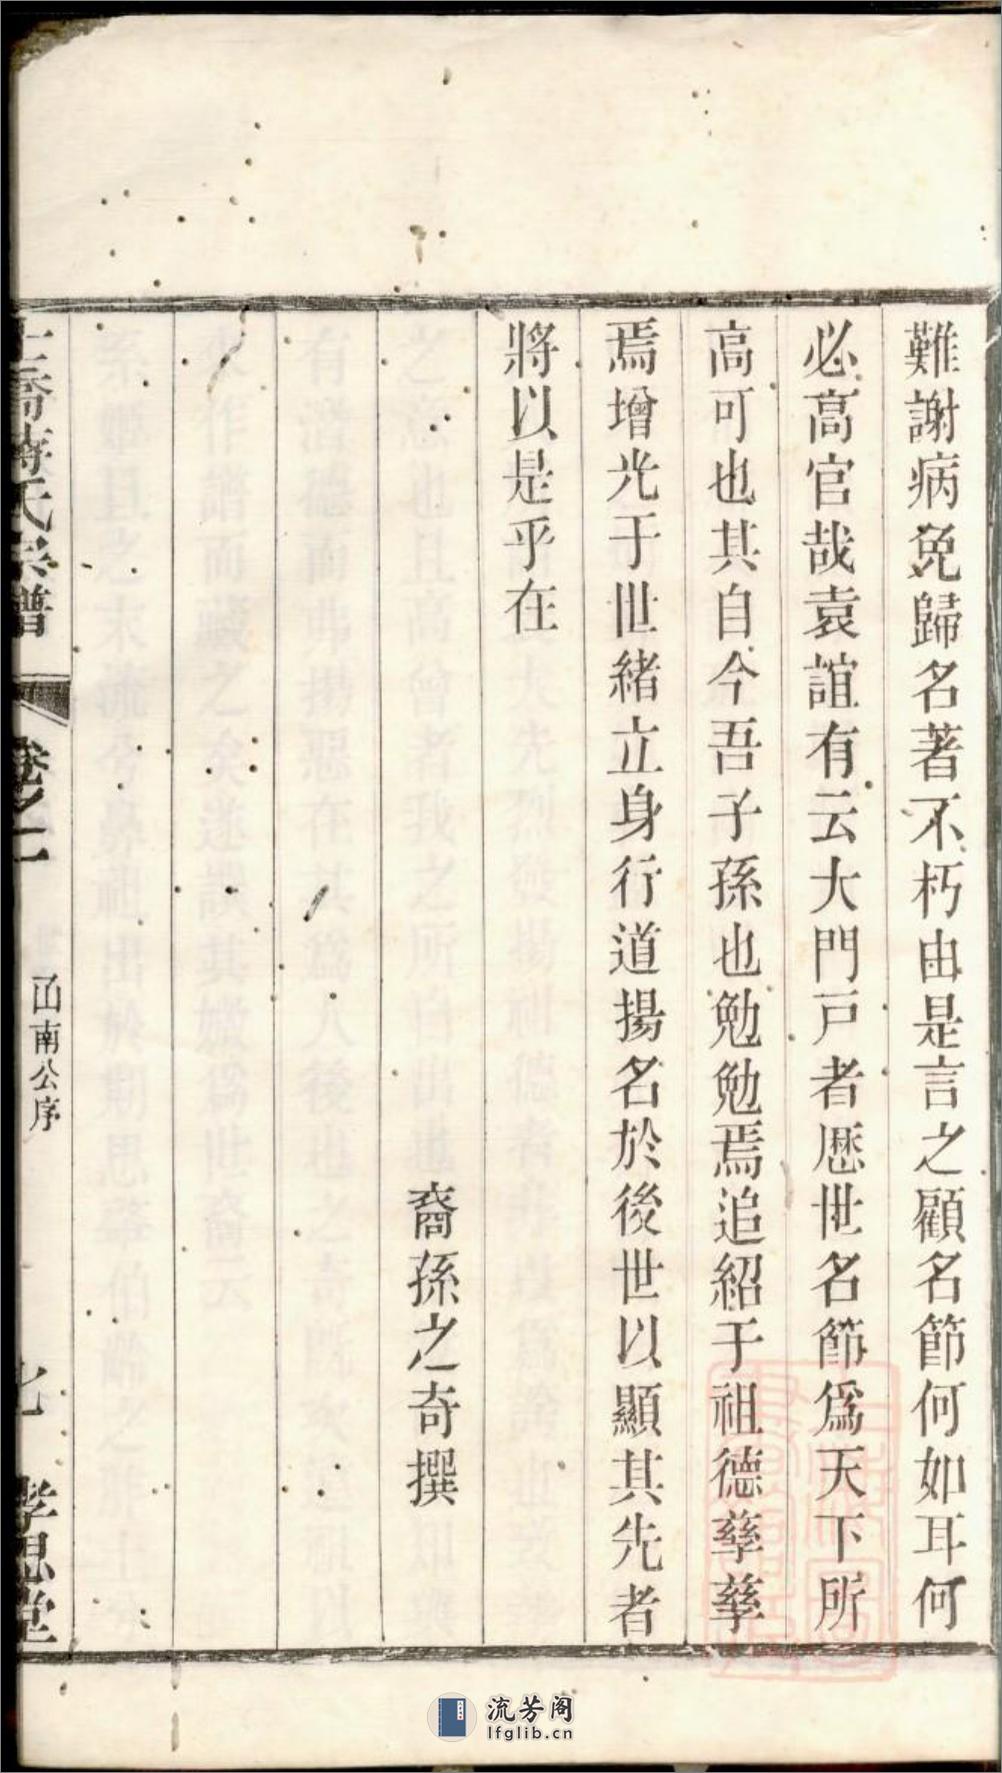 難謝病免歸名著不朽由是言之顧名節何如耳何
必高官哉袁誼有云大門戸者歷世名節爲天下所
高可也其自今吾子孫也勉勉焉追紹于祖德孳孳
焉增光于世緒立身行道揚名於後世以顯其先者
將以是乎在
裔孫之奇撰
蔣氏宗譜
卷之一
南公序
七
孝思堂
流芳阁
lfglib.cn